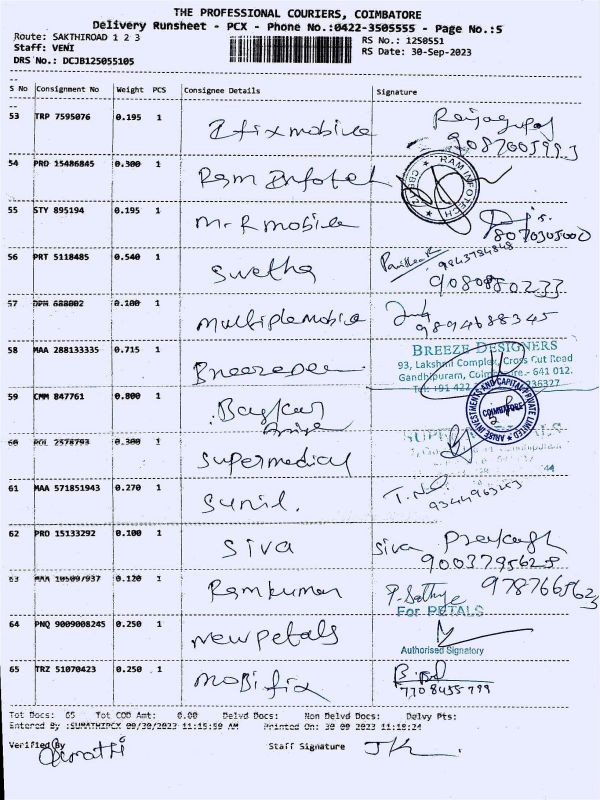 THE PROFESSIONAL COURIERS, COIMBATORE
Delivery Runsheet - PCX - Phone No.:0422-3505555 - Page No.:5
Route: SAKTHIROAD 1 2 3
RS No.: 1250551
Staff: VENI
RS Date: 30-Sep-2023
DRS No.: DCJB125055105
S No Consignment No Weight PCS Consignee Details Signature
53 TRP 7595076 0.195 1 Zfixmobile Rajagopal
9087005993
54 PRO 15486845 0.300 1 Ram Infotech
RAM INFOTECH
55 STY 895194 0.195 1 Mr.R mobile
8070305000
56 PRT 5118485 0.540 1 Swetha
9843754848
9080880233
57 DPM 688002 0.180 1 multiplemobile
9894688345
58 MAA 288133335 0.715 1 Breezedee
BREEZE DESIGNERS
93, Lakshmi Complex, Cross Cut Road
Gandhipuram, Coimbatore.- 641 012.
Tel: +91 422 236327
59 CMM 847761 0.800 1 Baskar
Arise
ARISE INVESTMENTS AND CAPITAL PRIVATE LIMITED
COIMBATORE
60 POL 2578793 0.300 1 Supermedical
44
61 MAA 571851943 0.270 1 Sunil.
62 PRO 15133292 0.100 1 Siva Siva Prakash
9003795628
63 0.120 1 Ramkumar P. Sathya
9787665623
64 PNQ 9009008245 0.250 1 Newpetals
For PETALS
Authorised Signatory
65 TRZ 51070423 0.250 1 Mobifix
7708455799
Tot Docs: 65 Tot COD Amt: 0.00 Delvd Docs: Non Delvd Docs: Delvy Pts:
Entered By :SUMATHIPCX 09/30/2023 11:15:50 AM Printed On: 30 09 2023 11:18:24
Verified By
Staff Signature